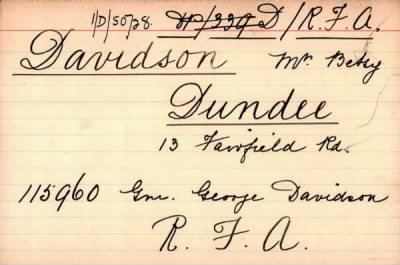 1/D/50/28. D/229 D/R.F.A.
Davidson Mrs Betsy
Dundee
13 Fairfield Rd.
115960 Gnr. George Davidson
R. F. A.